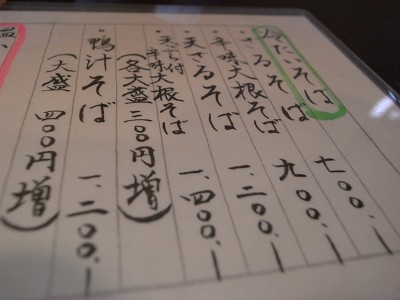 冷たいそば
・ざるそば 七〇〇.ー
・辛味大根そば 九〇〇.ー
・天ざるそば 一.二〇〇.ー
・天ぷら付辛味大根そば 一.四〇〇.ー
(各大盛三〇〇円増)
・鴨汁そば 一.二〇〇.ー
(大盛 四〇〇円増)
温